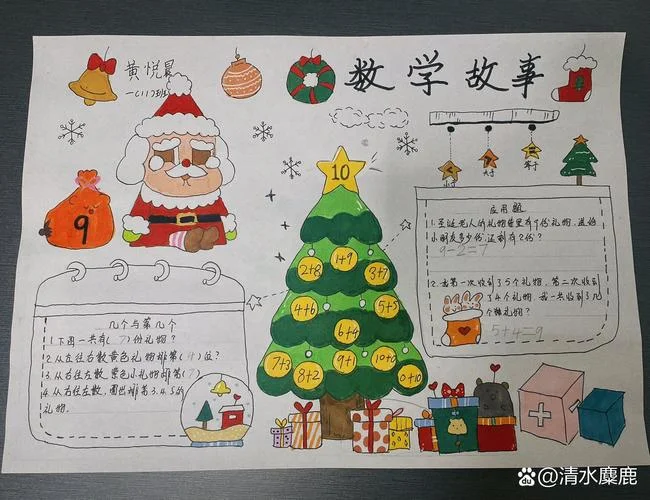 黄悦晨
一(11)班
数学故事
小于
大于
等于
9
10
1+9
2+8
3+7
4+6
5+5
6+4
7+3
8+2
9+1
10+0
0+10
应用题
1.圣诞老人的礼物袋里有9份礼物,送给
小朋友多少份还剩有2份?
9-2=7
2.我第一次收到了5个礼物,第二次收到
了4个礼物,我一共收到了几
个礼物?
5+4=9
几个与第几个
1.下图一共有(7)份礼物?
2.从左往右数黄色礼物排第(4)位?
3.从右往左数,黑色小礼物排第(7)
4.从右往左数,圈出排第3.4.5的
礼物.
@清水麋鹿